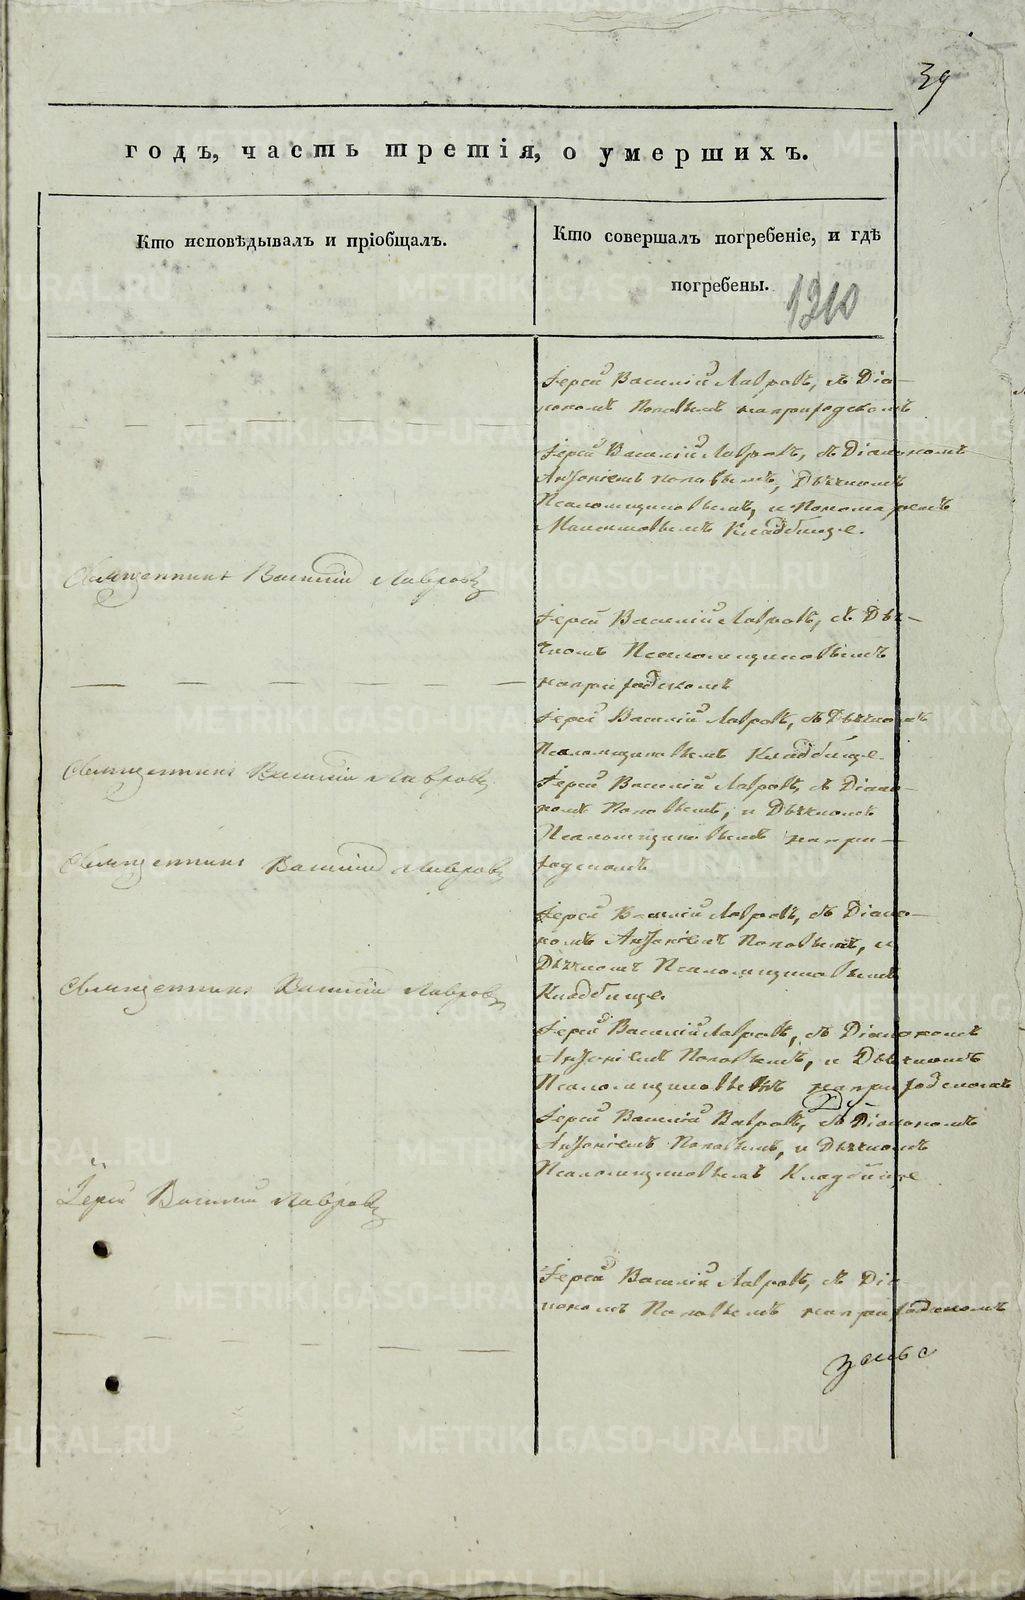 39
годъ, часть третія, о умершихъ.
Кто исповѣдывалъ и пріобщалъ.
Кто совершалъ погребеніе, и гдѣ
погребены.
1210
Іерей Василій Лавровъ, съ Діа-
кономъ Поповымъ на приходскомъ
Іерей Василій Лавровъ, съ Діакономъ
Антоніемъ Поповымъ, Дьячкомъ
Псаломщиковымъ, и Пономаремъ
Кладбище.
Священникъ Василій Лавровъ
Іерей Василій Лавровъ, съ Дья-
чкомъ Псаломщиковымъ
на приходскомъ
Іерей Василій Лавровъ, съ Дьячкомъ
Псаломщиковымъ Кладбище.
Священникъ Василій Лавровъ
Іерей Василій Лавровъ, съ Діако-
номъ Поповымъ, и Дьячкомъ
Псаломщиковымъ на при-
ходскомъ
Священникъ Василій Лавровъ
Іерей Василій Лавровъ, съ Діако-
номъ Антоніемъ Поповымъ, и
Дьячкомъ Псаломщиковымъ
Кладбище.
Священникъ Василій Лавровъ
Іерей Василій Лавровъ, съ Діакономъ
Антоніемъ Поповымъ, и Дьячкомъ
Псаломщиковымъ на приходскомъ
Іерей Василій Лавровъ, съ Діакономъ
Антоніемъ Поповымъ, и Дьячкомъ
Псаломщиковымъ Кладбище
Іерей Василій Лавровъ
Іерей Василій Лавровъ, съ Діа-
кономъ Поповымъ на приходскомъ
METRIKI.GASO-URAL.RU